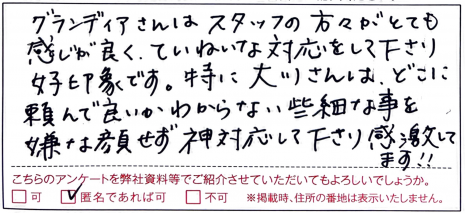 グランディアさんは スタッフの方々がとても
感じが良く、ていねいな対応をして下さり
好印象です。特に大川さんは、どこに
頼んで良いかわからない些細な事を
嫌な顔せず神対応して下さり感激して
ます!!
こちらのアンケートを弊社資料等でご紹介させていただいてもよろしいでしょうか。
□可 ☑匿名であれば可 □不可 ※掲載時、住所の番地は表示いたしません。